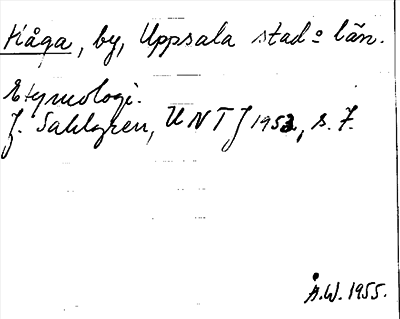 Håga, by, Uppsala stad o län.
Etymologi.
J. Sahlgren, UNT 1953, s. 7.
Å.W. 1955.